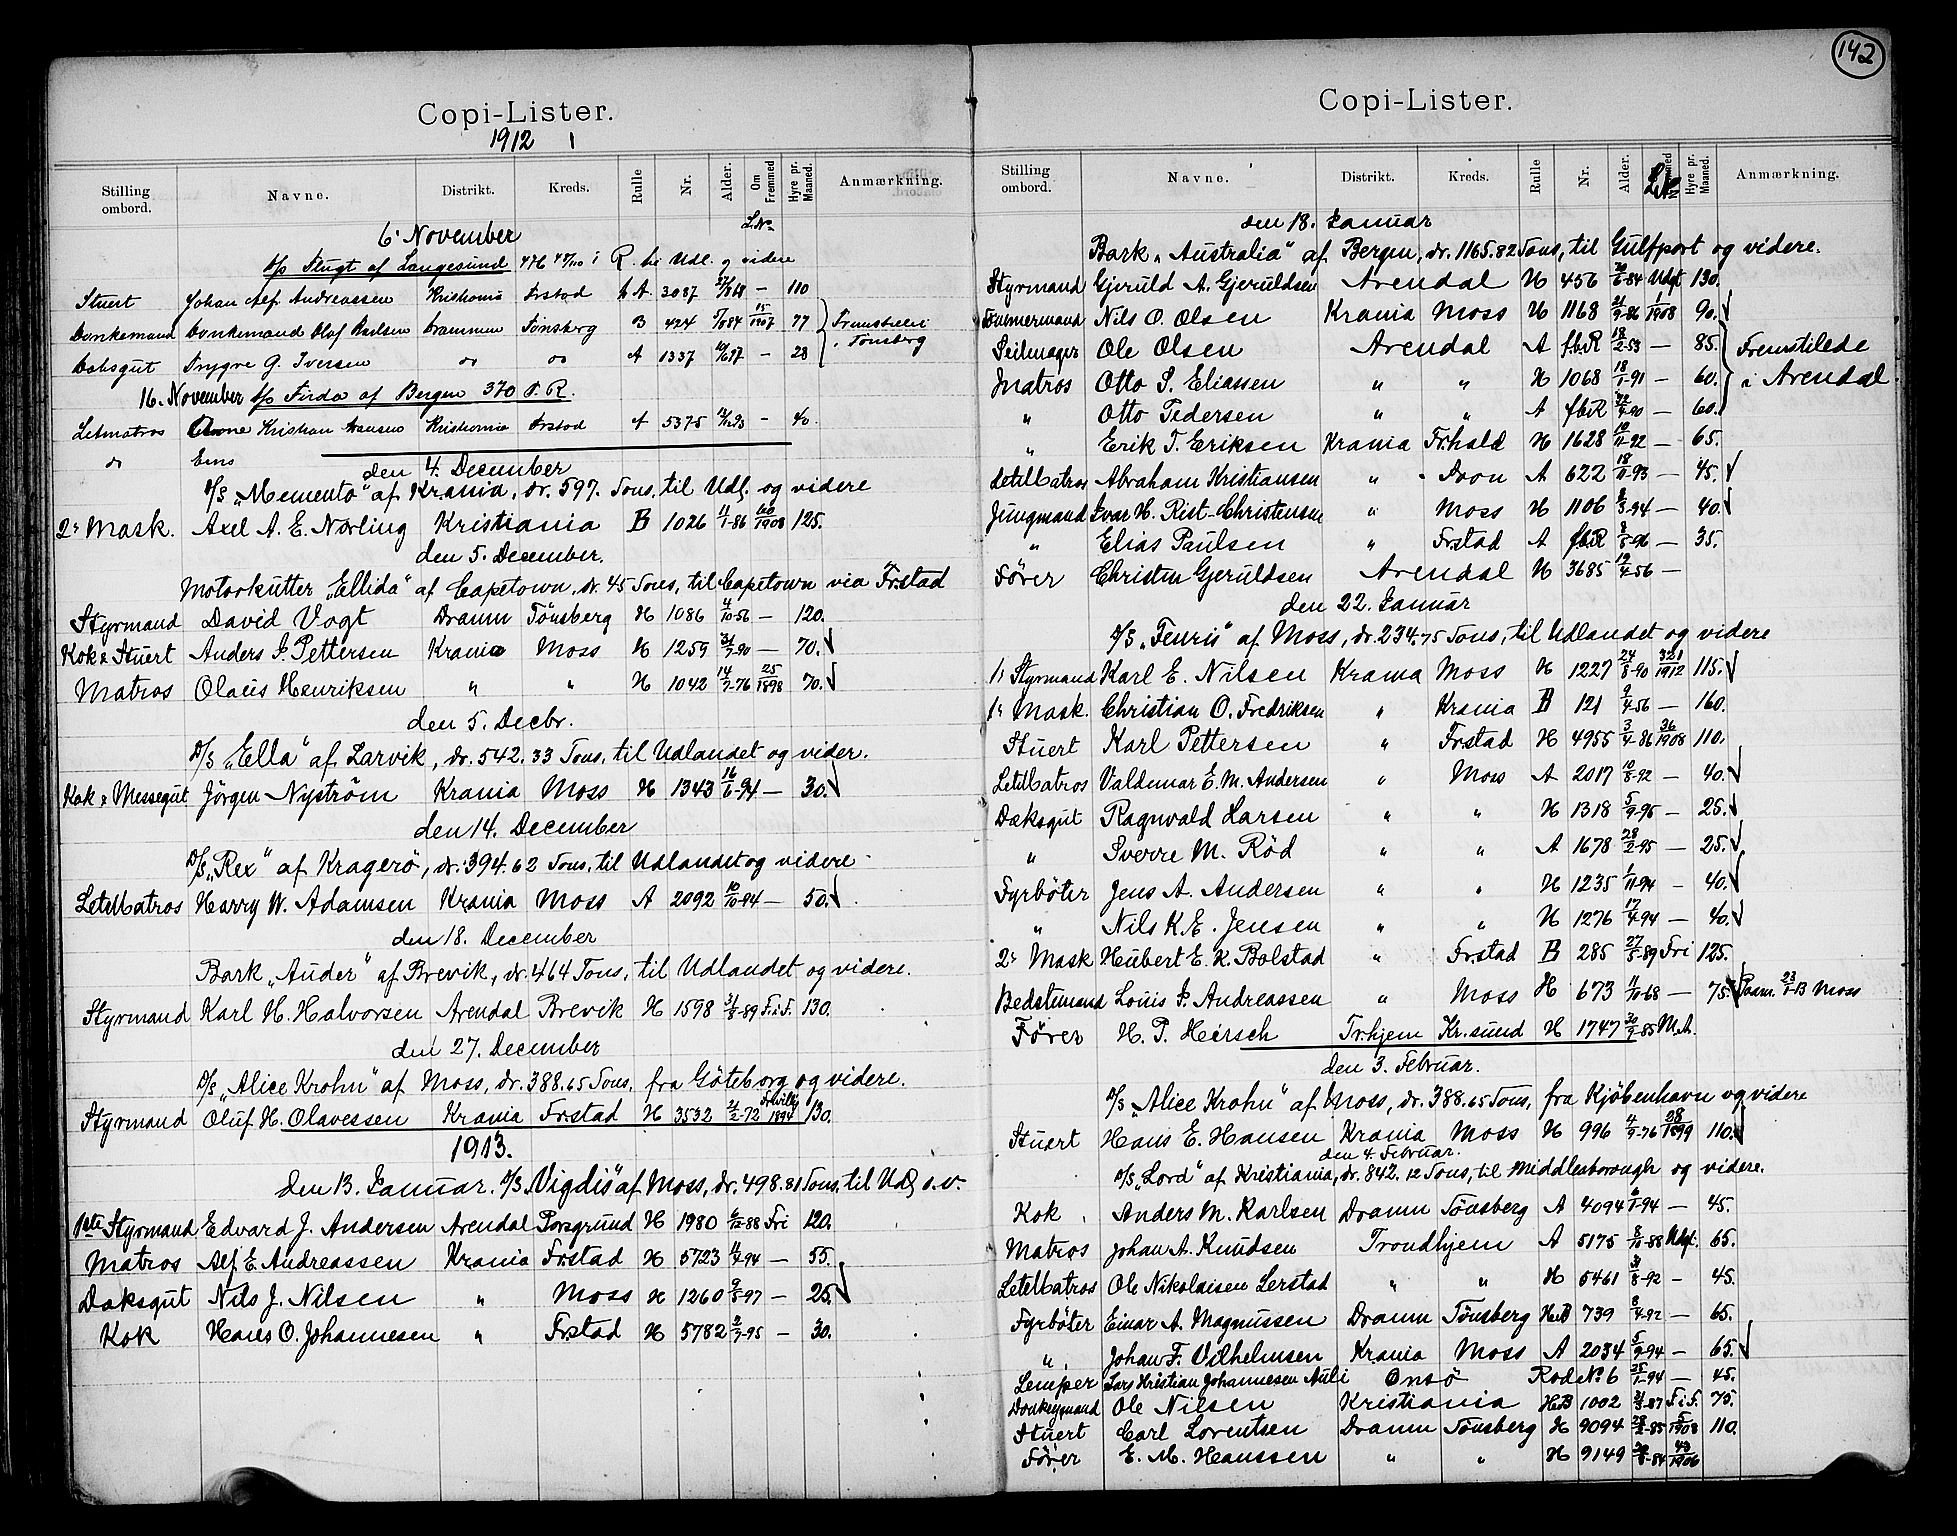 142
Copi-Lister.
1912 1
Stilling ombord. Navne. Distrikt. Kreds. Rulle Nr. Alder. Om Fremmed Hyre pr. Maaned. Anmærkning.
L.No
6. November
af Langesund i R. til Udl. og videre
Stuert Johan Alf Andreassen Kristiania Frstad A 3087 — 110
Donkemand Donkemand Olaf Karlsen Drammen Tönsberg B 424 15/1907 77 Fremstillei
Daksgut Trygve G. Iversen do do A 1337 — 28 i Tönsberg
16. November Firda af Bergen 370 T. R.
Letmatros Kristian Hansen Kristiania Frstad A 5375 — 40.
do Ems
den 4. December
D/S "Memento" af Krania, dr. 597. Tons, til Udl. og videre
2. Mask. Axel A. E. Norling Kristiania B 1026 11/1-86 60/1908 125.
den 5. December.
Motorkutter "Ellida" af Capetown, dr. 45 Tons, til Capetown via Frstad
Styrmand David Vogt Dramn Tönsberg H 1086 4/10-56 — 120.
Kok & Stuert Anders J. Pettersen Krania Moss H 1259 31/7-90 — 70.
Matros Olaus Henriksen " " H 1042 14/7-76 25/1898 70.
den 5. Decbr.
D/S "Ella" af Larvik, dr. 542.33 Tons, til Udlandet og vider.
Kok & Messegut Jörgen Nyström Krania Moss H 1343 16/6-94 — 30.
den 14. December
D/S "Rex" af Kragerö, dr. 394.62 Tons, til Udlandet og videre
LetMatros Harry W. Adamsen Krania Moss A 2092 10/10-94 — 50.
den 18. December
Bark "Auder" af Brevik, dr. 464 Tons, til Udlandet og videre.
Styrmand Karl H. Halvorsen Arendal Brevik H 1598 31/8-89 F.i.F. 130.
den 27. December
D/S "Alice Krohn" af Moss, dr. 388.65 Tons, fra Göteborg og videre.
Styrmand Oluf H. Olavessen Krania Frstad H 3532 21/2-72 1894 130.
1913.
den 13. Januar. D/S "Vigdis" af Moss, dr. 498.81 Tons, til Udl o. v.
1ste Styrmand Edvard J. Andersen Arendal Porsgrund H 1980 6/12-88 Fri 120.
Matros Alf E. Andreassen Krania Frstad H 5723 11/4-94 — 55.
Daksgut Nils J. Nilsen " Moss H 1260 9/5-97 — 25.
Kok Hans O. Johannesen " Frstad H 5782 2/7-95 — 30.
Copi-Lister.
Stilling ombord. Navne. Distrikt. Kreds. Rulle Nr. Alder. L.No Hyre pr. Maaned. Anmærkning.
den 18. Januar
Bark "Australia" af Bergen, dr. 1165.82 Tons, til Gulfport og videre.
Styrmand Gjeruld A. Gjeruldsen Arendal H 456 20/6-84 Udpt 130.
Tömmermand Nils O. Olsen Krania Moss H 1168 21/9-86 1/1908 90.
Seilmager Ole Olsen Arendal A f.b.R 18/2-53 — 85. Fremstilede
Matros Otto S. Eliassen " " H 1068 18/1-91 — 60. i Arendal
" Otto Pedersen " " A fbR 22/4-90 — 60.
" Erik T. Eriksen Krania Fr.hald H 1628 10/11-92 — 65.
LetMatros Abraham Kristiansen " A 622 18/11-93 — 45.
Jungmand Ivar H. Rist-Christensen " Moss H 1106 8/3-94 — 40.
" Elias Paulsen " Frstad A fbR 8/8-96 — 35.
Förer Christen Gjeruldsen Arendal H 3685 19/4-56 —
den 22. Januar
D/S "Fenris" af Moss, dr. 234.75 Tons, til Udlandet og videre
1. Styrmand Karl E. Nilsen Krania Moss H 1227 24/8-90 321/1912 115.
1. Mask. Christian O. Fredriksen " Krania B 121 9/4-56 — 160.
Stuert Karl Pettersen " Frstad H 4955 3/4-86 36/1908 110.
LetMatros Valdemar E. M. Andersen " Moss A 2017 10/8-92 — 40.
Daksgut Ragnvald Larsen " " H 1318 5/9-95 — 25.
" Sverre M. Röd " " A 1678 28/2-95 — 25.
Fyrböter Jens A. Andersen " " H 1235 1/11-94 — 40.
" Nils K. E. Jensen " " H 1276 17/4-94 — 40.
2. Mask Hubert E. K. Bolstad " Frstad B 285 27/5-89 Fri 125.
Bedstemand Louis J. Andreassen " Moss H 673 11/10-68 — 75. 23/1-13 Moss
Förer H. P. Hersch Tr.hjem Kr.sund H 1747 30/9-85 M.A.
den 3. Februar.
D/S "Alice Krohn" af Moss, dr. 388.65 Tons, fra Kjöbenhavn og videre
Stuert Hans E. Hansen Krania Moss H 996 4/9-76 28/1899 110.
den 4 Februar.
D/S "Lord" af Kristiania, dr. 842.12 Tons, til Middlesborough og videre.
Kok Anders M. Karlsen Dramn Tönsberg A 4094 6/1-94 — 45.
Matros Johan A. Knudsen Trondhjem A 5175 8/10-88 Udpt. 65.
LetMatros Ole Nikolaisen Lerstad " " H 5461 31/8-92 — 45.
Fyrböter Einar A. Magnussen Dramn Tönsberg H.B 739 8/4-92 — 65.
" Johan F. Vilhelmsen Krania Moss A 2034 5/9-94 — 65.
Lemper Lars Kristian Johannesen Auli Onsö Rode No 6 25/1-94 — 45.
Donkeymand Ole Nilsen Kristiania H.B 1002 21/8-87 F.i.F. 75.
Stuert Carl Lorentsen Dramn Tönsberg H 9094 28/2-85 5/1908 110.
Förer E. M. Hanssen " " H 9149 20/8-84 43/1906